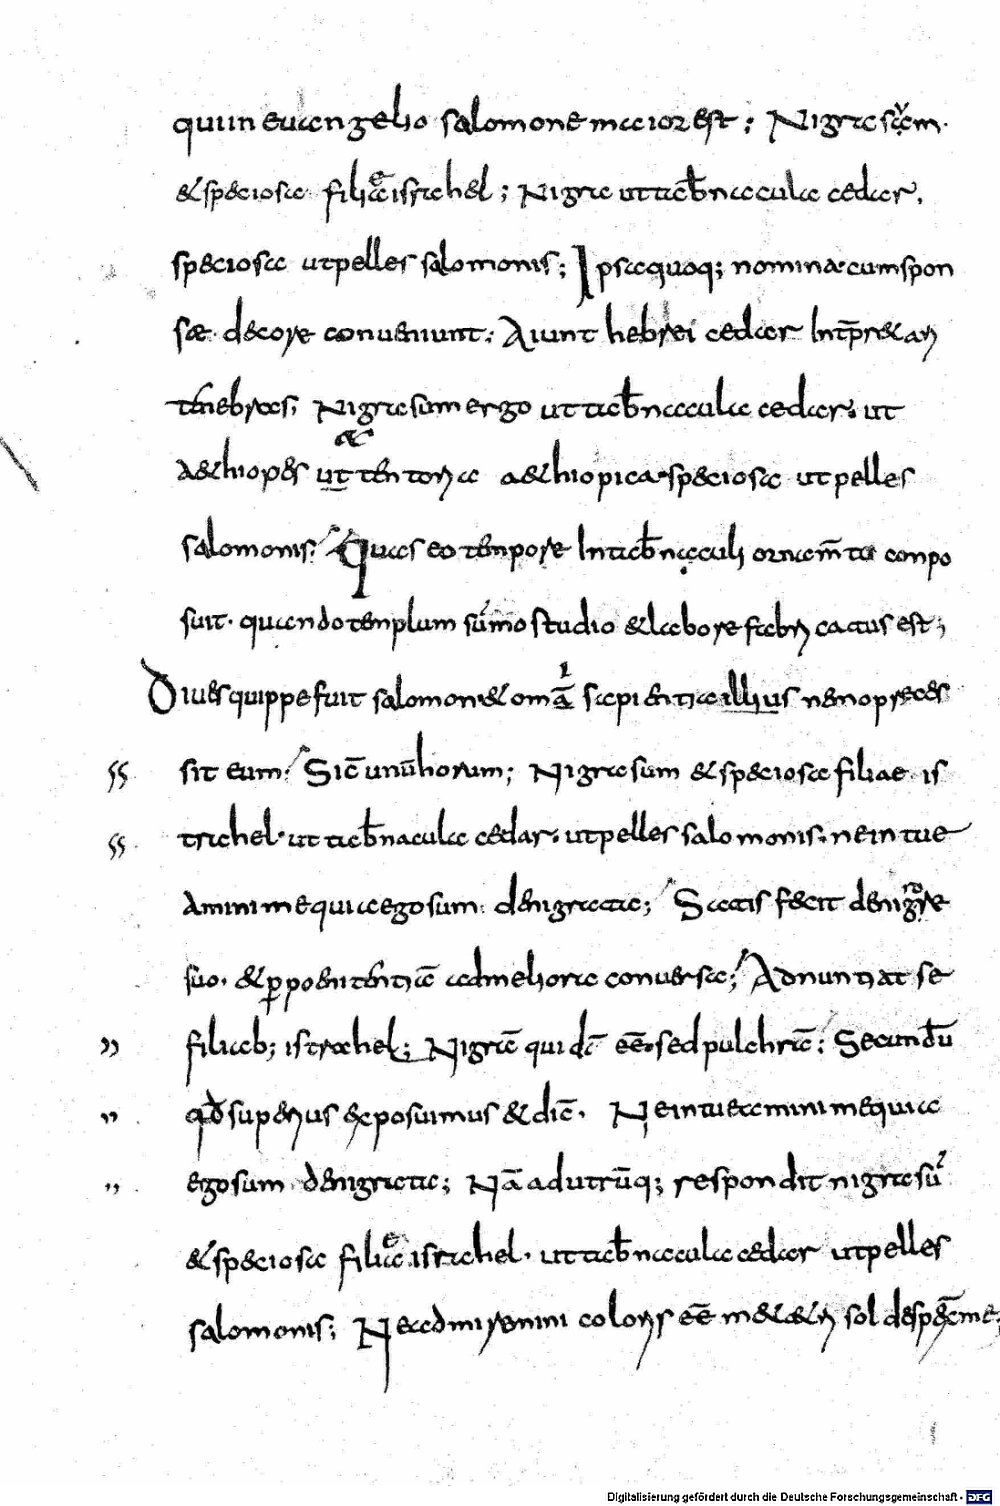 qui in euangelio salomone maior est; Nigra sum.
& speciosa filiae israhel; Nigra ut tab̄nacula cedar.
speciosa ut pelles salomonis; Ipsa quoq; nomina cum spon
sae decore conueniunt; Aiunt hebrei cedar Int̄pr&ari
tenebras; Nigra sum ergo ut tab̄nacula cedar. ut
a&hiopes ut tentoria a&hiopica. speciosa ut pelles
salomonis; Quas eo tempore In tab̄naculi ornam̄to conpo
suit. quando templum sūmo studio & labore fabricatus est;
Diues quippe fuit salomon & om̄a sapientia illius ne non praeces
sit eum; Sic̄ unū horum; Nigra sum & speciosa filiae is
rahel. ut tab̄nacula cedar. ut pelles salomonis. ne intue
amini me quia ego sum denigrata; Satis fecit denigre
suo. & p̱ poenitentiā ad meliora conuersa; Adnuntiat se
filiab; israhel; Nigrā quidē eē. sed pulchrā; Secundū
qđ superius exposuimus & dic̄. Ne intueamini me quia
ego sum denigrata; Nā ad utrūq; respondit nigra sū
& speciosa filiae israhel. ut tab̄nacula cedar ut pelles
salomonis; Ne admiremini coloris eē me &&ri sol despex̄ me;
Digitalisierung gefördert durch die Deutsche Forschungsgemeinschaft - DFG